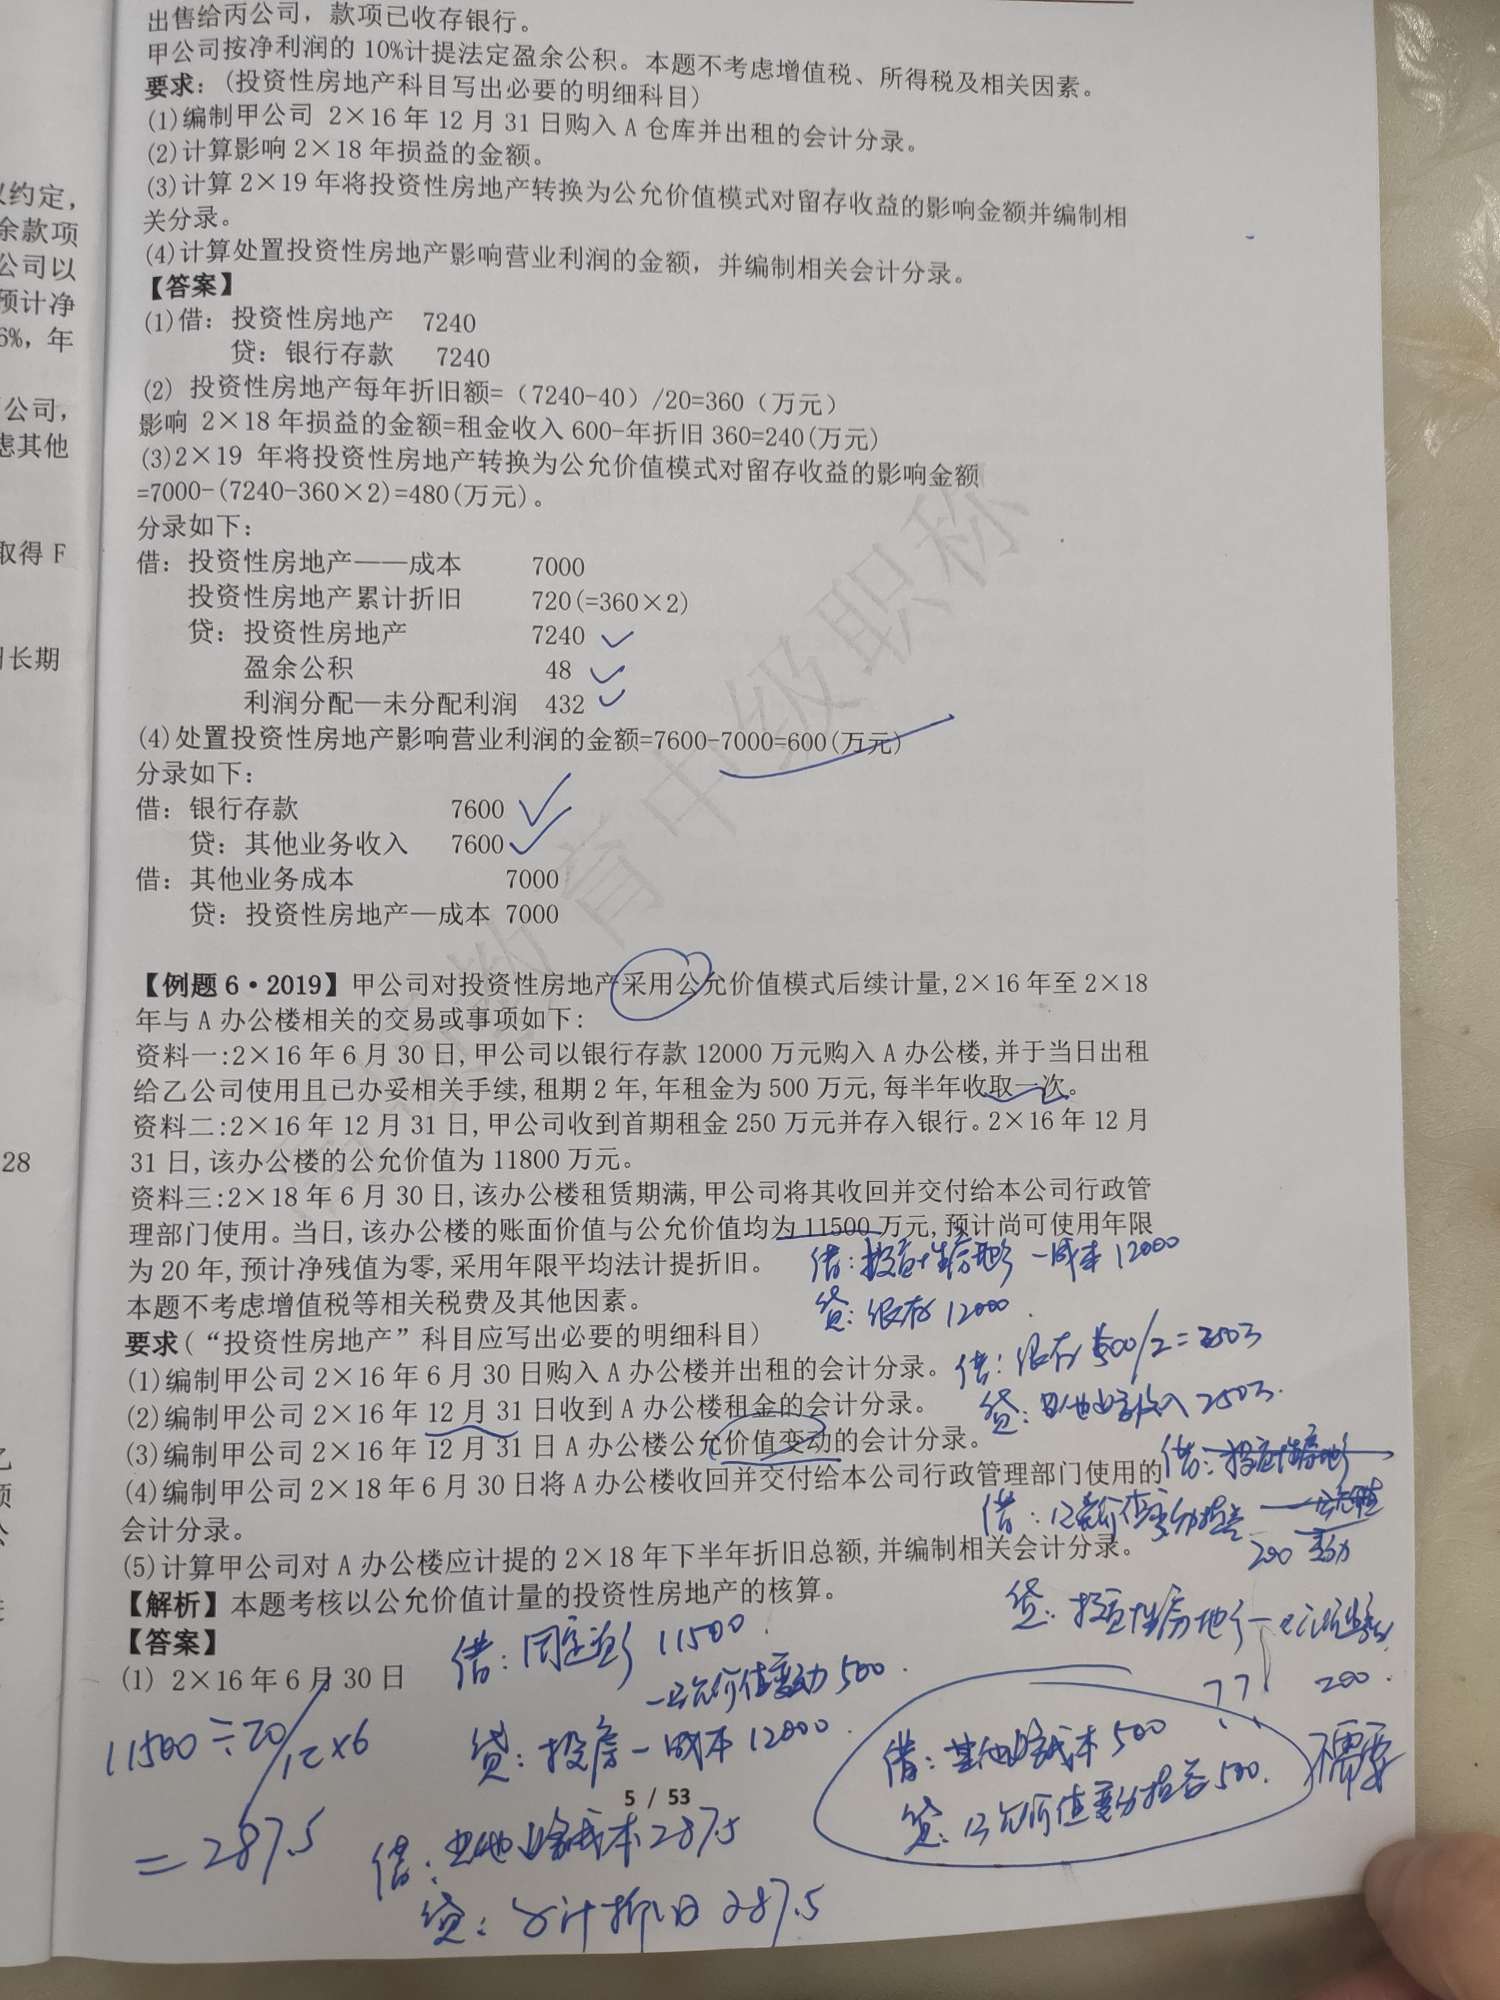 出售给丙公司，款项已收存银行。
甲公司按净利润的10%计提法定盈余公积。本题不考虑增值税、所得税及相关因素。
要求：(投资性房地产科目写出必要的明细科目)
(1)编制甲公司 2×16年12月31日购入A仓库并出租的会计分录。
(2)计算影响2×18年损益的金额。
(3)计算2×19年将投资性房地产转换为公允价值模式对留存收益的影响金额并编制相
关分录。
(4)计算处置投资性房地产影响营业利润的金额，并编制相关会计分录。
【答案】
(1)借：投资性房地产 7240
贷：银行存款 7240
(2) 投资性房地产每年折旧额=（7240-40）/20=360（万元）
影响 2×18年损益的金额=租金收入600-年折旧360=240(万元)
(3)2×19 年将投资性房地产转换为公允价值模式对留存收益的影响金额
=7000-(7240-360×2)=480(万元)。
分录如下：
借：投资性房地产——成本 7000
投资性房地产累计折旧 720(=360×2)
贷：投资性房地产 7240
盈余公积 48
利润分配—未分配利润 432
(4)处置投资性房地产影响营业利润的金额=7600-7000=600(万元)
分录如下：
借：银行存款 7600
贷：其他业务收入 7600
借：其他业务成本 7000
贷：投资性房地产—成本 7000
【例题6·2019】甲公司对投资性房地产采用公允价值模式后续计量,2×16年至2×18
年与A办公楼相关的交易或事项如下:
资料一:2×16年6月30日,甲公司以银行存款12000万元购入A办公楼,并于当日出租
给乙公司使用且已办妥相关手续,租期2年,年租金为500万元,每半年收取一次。
资料二:2×16年12月31日,甲公司收到首期租金250万元并存入银行。2×16年12月
31日,该办公楼的公允价值为11800万元。
资料三:2×18年6月30日,该办公楼租赁期满,甲公司将其收回并交付给本公司行政管
理部门使用。当日,该办公楼的账面价值与公允价值均为11500万元,预计尚可使用年限
为20年,预计净残值为零,采用年限平均法计提折旧。
借：投资性房地产—成本12000
本题不考虑增值税等相关税费及其他因素。
贷：银存12000.
要求(“投资性房地产”科目应写出必要的明细科目)
(1)编制甲公司2×16年6月30日购入A办公楼并出租的会计分录。
借：银存500/2=250万
(2)编制甲公司2×16年12月31日收到A办公楼租金的会计分录。
贷：其他业务收入250万.
(3)编制甲公司2×16年12月31日A办公楼公允价值变动的会计分录。
(4)编制甲公司2×18年6月30日将A办公楼收回并交付给本公司行政管理部门使用的
借：投资性房地产
会计分录。
借：公允价值变动损益 200
(5)计算甲公司对A办公楼应计提的2×18年下半年折旧总额,并编制相关会计分录。
【解析】本题考核以公允价值计量的投资性房地产的核算。
贷：投资性房地产—公允价值变动
200.
【答案】
(1) 2×16年6月30日
借：固定资产 11500.
—公允价值变动500.
贷：投房—成本12000.
11500÷20/12×6
=287.5
借：其他业务成本500
贷：公允价值变动损益500.
不需要
5 / 53
借：其他业务成本287.5
贷：累计折旧287.5